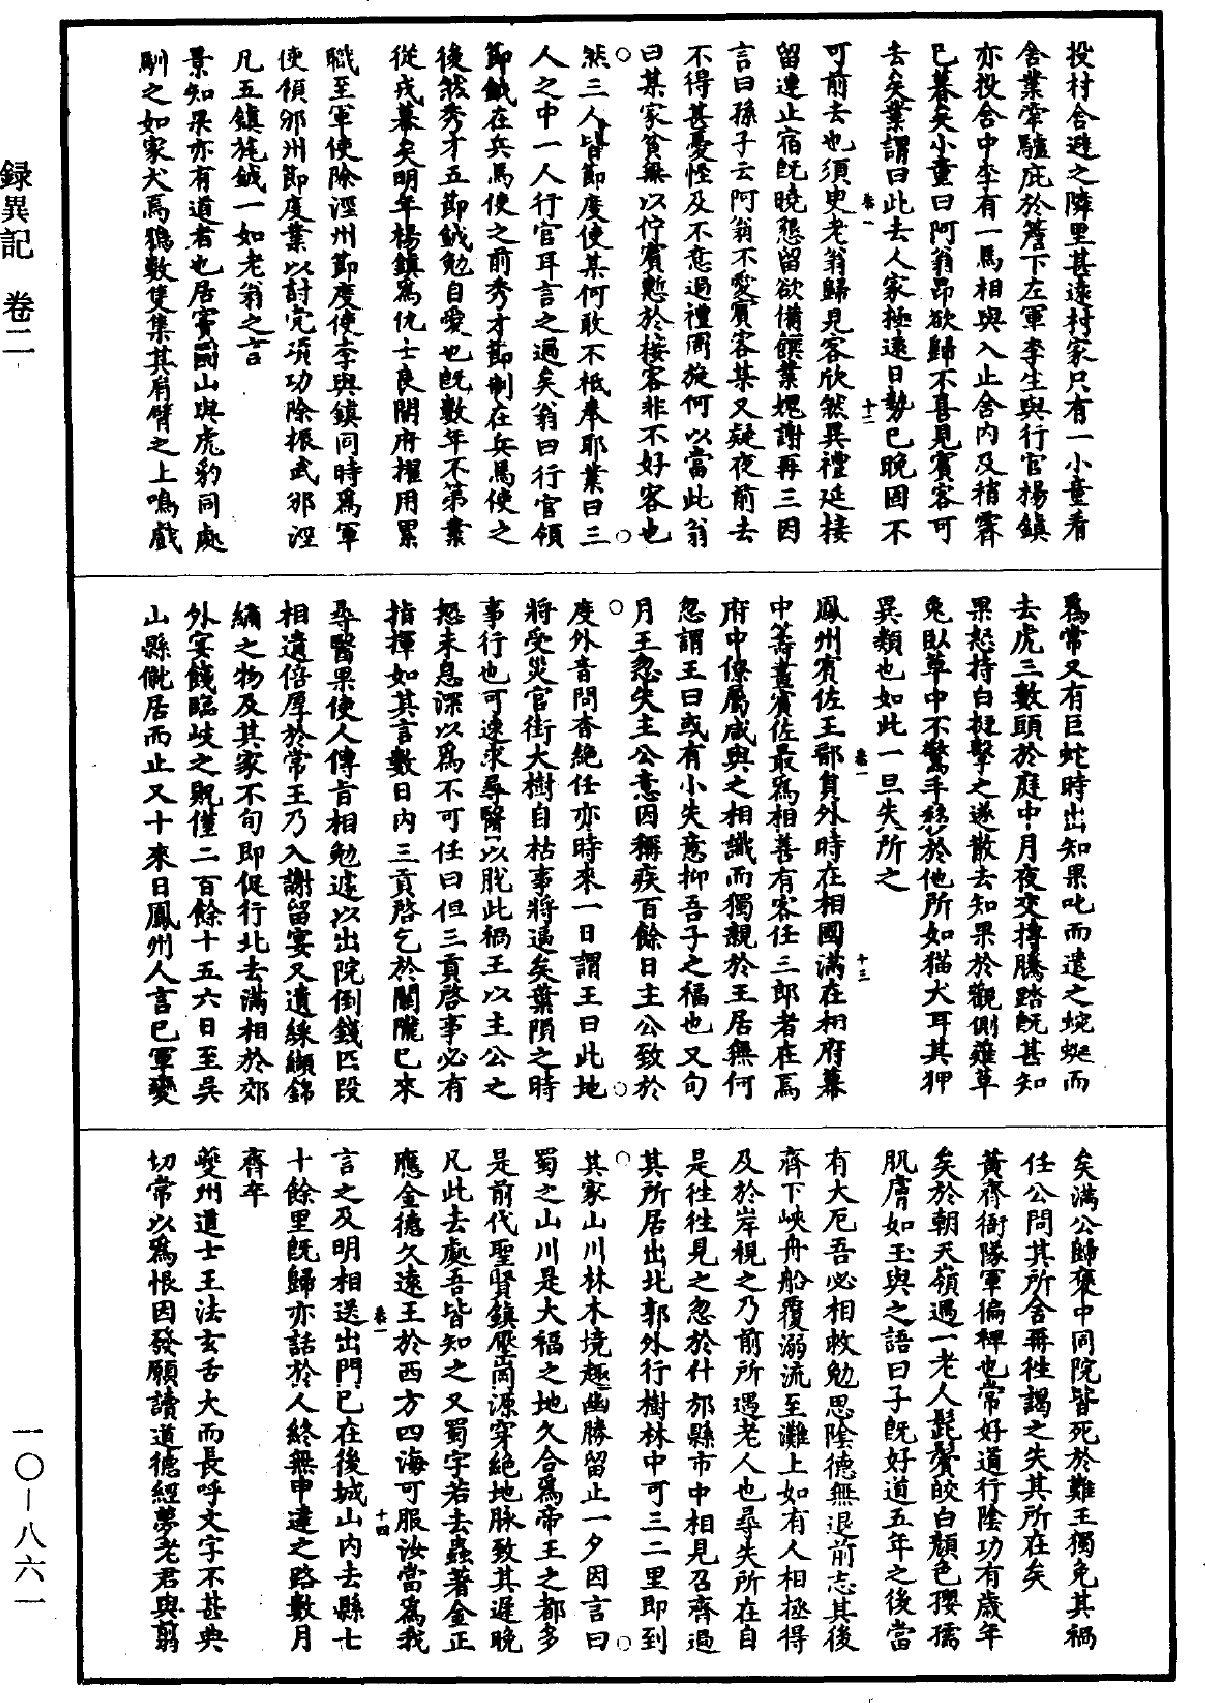 投村舍避之隣里甚遠村家只有一小童看
舍業牽驢庇於簷下左軍李生與行官楊鎮
亦投舍中李有一馬相與入止舍內及稍霽
已暮矣小童曰阿翁昂欲歸不喜見賓客可
去矣業謂曰此去人家極遠日勢已晚固不
卷一　十二
可前去也須臾老翁歸見客欣然異禮延接
留連止宿旣曉懇留欲備饌業媿謝再三因
言曰孫子云阿翁不愛賓客某又疑夜前去
不得甚憂怪及不意過禮周旋何以當此翁
曰某家貧無以佇賓慙於接客非不好客也
然三人皆節度使某何敢不祗奉耶業曰三
人之中一人行官耳言之過矣翁曰行官領
節鉞在兵馬使之前秀才節制在兵馬使之
後然秀才五節鉞勉自愛也旣數年不第業
從戎幕矣明年楊鎮爲仇士良開府擢用累
職至軍使除涇州節度使李與鎮同時爲軍
使領邠州節度業以討党項功除振武邠涇
凡五鎮旄鉞一如老翁之言
景知果亦有道者也居竇圌山與虎豹同處
馴之如家犬焉鴉數隻集其肩臂之上鳴戲
爲常又有巨蛇時出知果叱而遣之蜿蜒而
去虎三數頭於庭中月夜交摶騰踏旣甚知
果怒持白梃擊之遂散去知果於觀側薙草
兔臥草中不驚手移於他所如猫犬耳其狎
異類也如此一旦失所之
卷一　十三
鳳州賓佐王鄩員外時在相國滿在相府幕
中籌畫賓佐最爲相善有客任三郎者在焉
府中僚屬咸與之相識而獨親於王居無何
忽謂王曰或有小失意抑吾子之福也又旬
月王忽失主公意因稱疾百餘日主公致於
度外音問杳絕任亦時來一日謂王曰此地
將受災官街大樹自枯事將逼矣葉隕之時
事行也可速求尋醫以脫此禍王以主公之
怒未息深以爲不可任曰但三貢啓事必有
指揮如其言數日內三貢啓乞於關隴已來
尋醫果使人傳旨相勉遽以出院倒錢匹段
相遺倍厚於常王乃入謝留宴又遺綵纈錦
繡之物及其家不旬即促行北去滿相於郊
外宴餞臨歧之貺僅二百餘十五六日至吳
山縣僦居而止又十來日鳳州人言已軍變
矣滿公歸褒中同院皆死於難王獨免其禍
任公問其所舍再徃謁之失其所在矣
黃齊衙隊軍偏裨也常好道行陰功有歲年
矣於朝天嶺遇一老人髭鬢皎白顏色孾孺
肌膚如玉與之語曰子旣好道五年之後當
有大厄吾必相救勉思陰德無退前志其後
齊下峽舟船覆溺流至灘上如有人相拯得
及於岸視之乃前所遇老人也尋失所在自
是徃徃見之忽於什邡縣市中相見召齊過
其所居出北郭外行樹林中可三二里即到
其家山川林木境趣幽勝留止一夕因言曰
蜀之山川是大福之地久合爲帝王之都多
是前代聖賢鎮壓崗源穿絕地脉致其遲晚
凡此去處吾皆知之又蜀字若去蟲著金正
應金德久遠王於西方四海可服汝當爲我
卷一　十四
言之及明相送出門已在後城山內去縣七
十餘里旣歸亦話於人終無申達之路數月
齊卒
夔州道士王法玄舌大而長呼文字不甚典
切常以爲恨因發願讀道德經夢老君與剪
録異記　卷二
一〇－八六一